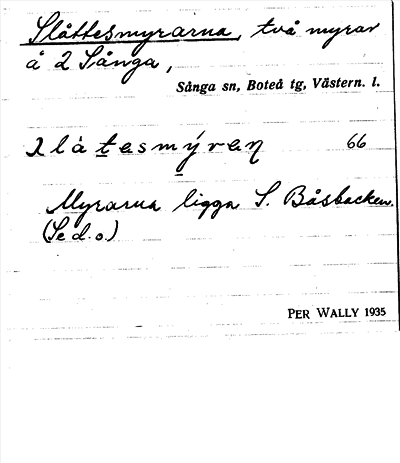 Slåttesmyrarna, två myrar
å 2 Sånga,
Sånga sn, Boteå tg, Västern. l.
slàtesmýren 66
Myrarna ligga S. Båsbacken.
(Se d.o.)
PER WALLY 1935